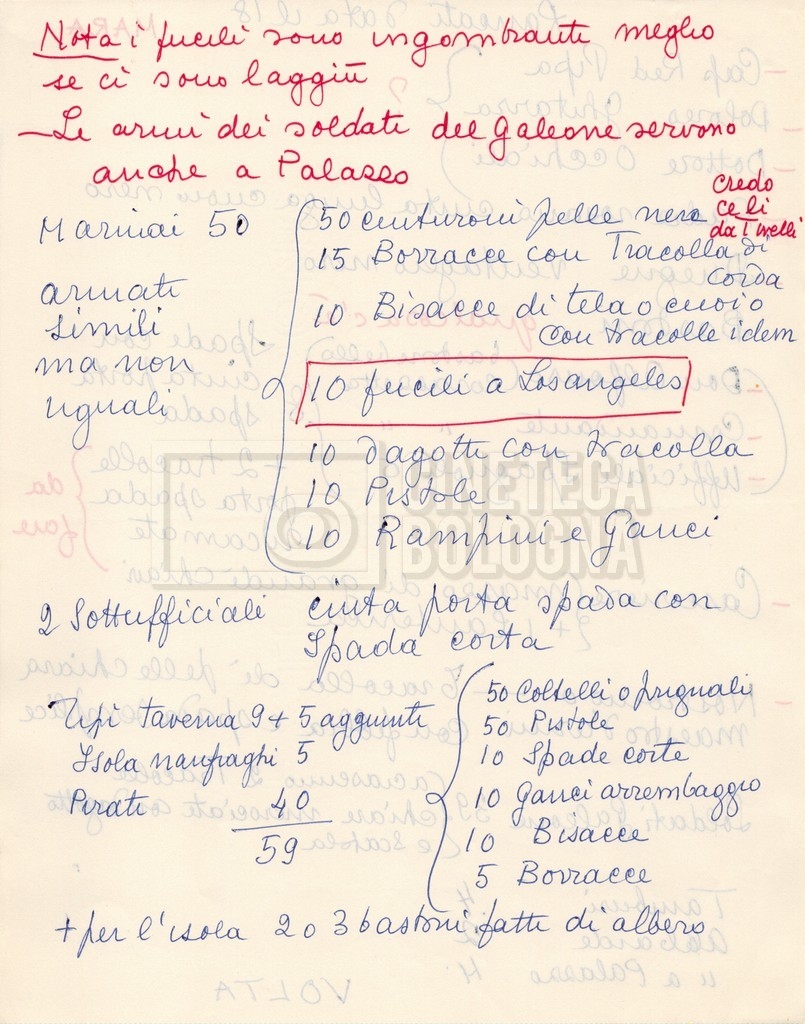 Nota i fucili sono ingombranti meglio
se ci sono laggiù
- Le armi dei soldati del galeone servono
anche a Palasso
credo
ce li
da Tirelli
Marinai 50
armati
simili
ma non
uguali
50 centuroni pelle nera
15 Borracce con Tracolla di
corda
10 Bisacce di tela o cuoio
con tracolle idem
10 fucili a Losangeles
10 dagotti con tracolla
10 Pistole
10 Rampini e Ganci
2 Sottufficiali cinta porta spada con
Spada corta
tipi taverna 9 + 5 aggiunti
Isola naufraghi 5
Pirati 40
59
50 Coltelli o pugnali
50 Pistole
10 Spade corte
10 Ganci arrembaggio
10 Bisacce
5 Borracce
+ per l'isola 2 o 3 bastoni fatti di albero
CINETECA
BOLOGNA
VOLTA